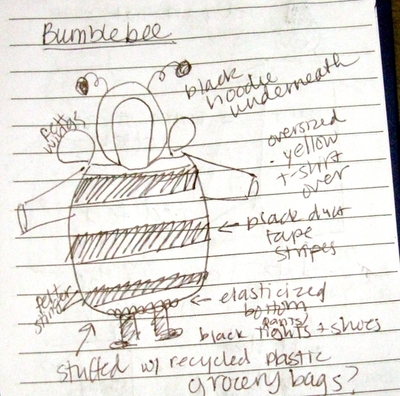 Bumblebee
black
hoodie
underneath
felt
wings
oversized
yellow
t-shirt
over
black duct
tape
stripes
elasticized
bottom
pants
black tights + shoes
stuffed w/ recycled plastic
grocery bags?